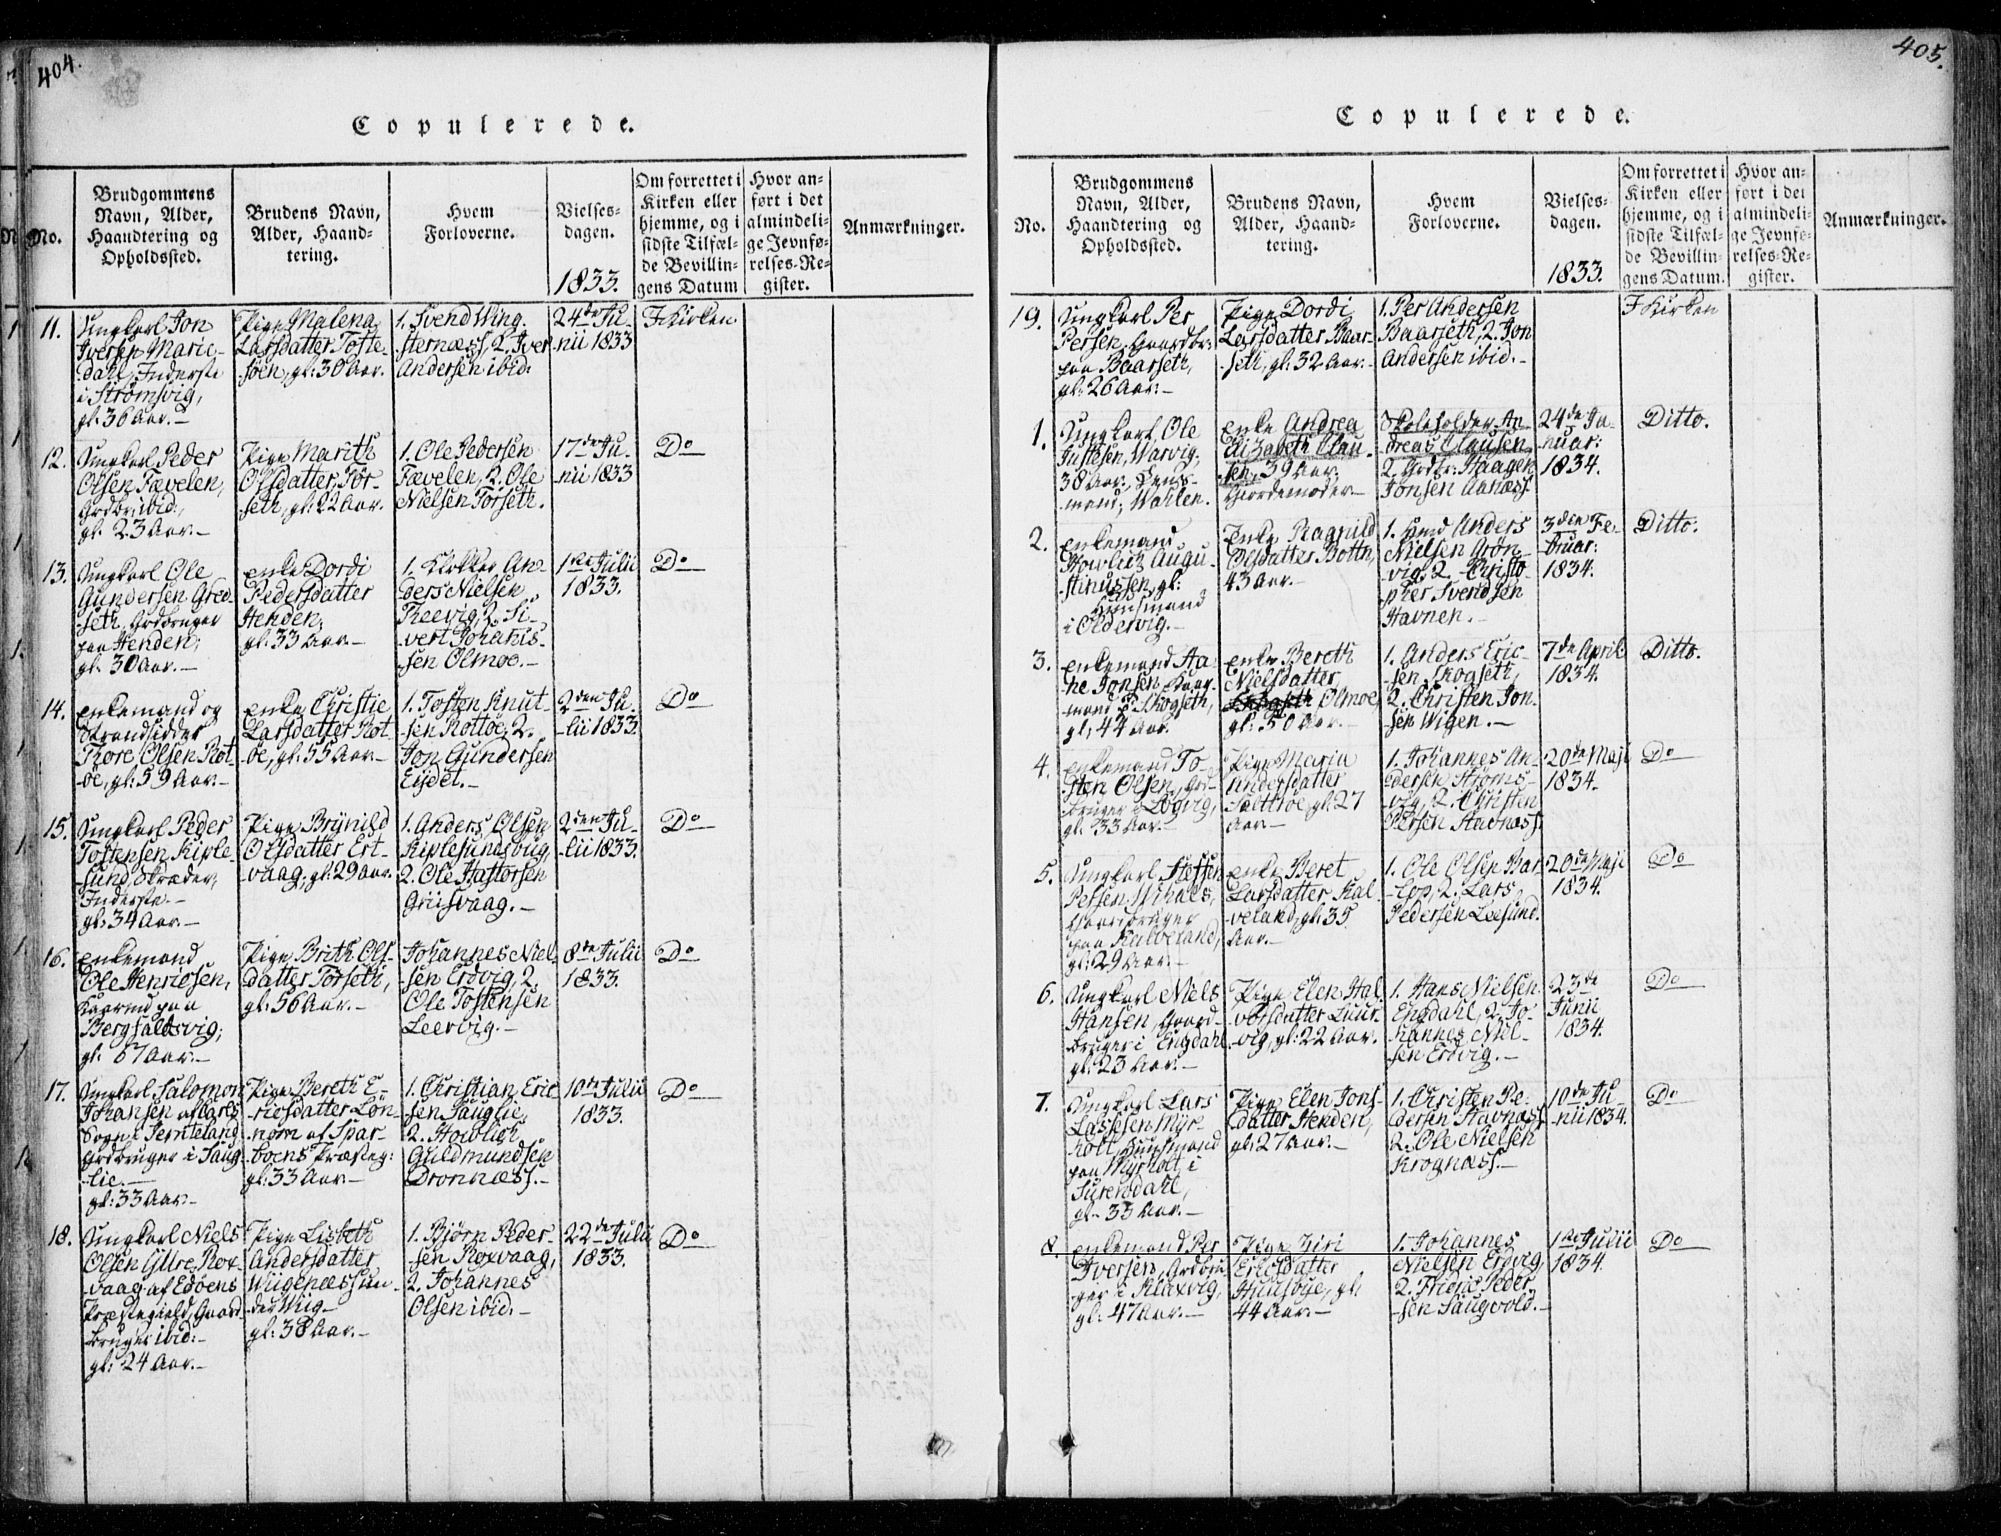 404.
Copulerede.
No.
Brudgommens
Navn, Alder,
Haandtering og
Opholdssted.
Brudens Navn,
Alder, Haand-
tering.
Hvem
Forloverne.
Vielses-
dagen.
1833.
Om forrettet i
Kirken eller
hjemme, og i
sidste Tilfæl-
de Bevillin-
gens Datum
Hvor an-
ført i det
almindeli-
ge Jevnfø-
relses-Re-
gister.
Anmærkninger.
11.
Ungkarl Jon
Iversen Marie-
dahl, Inderste
i Strømsvig,
gl: 36 Aar.-
Pige Malena
Larsdatter Toste-
søen, gl: 30 Aar.
1. Svend Wing-
sternæss, 2. Iver
Andersen ibid:
24de Ju-
nii 1833
I Kirken
12.
Ungkarl Peder
Olsen Fævelen,
Grdbr: ibid:,
gl: 23 Aar.-
Pige Marith
Olsdatter Tor-
seth, gl: 22 Aar.
1. Ole Pedersen
Fævelen, 2. Ole
Nielsen Torseth.
17de Ju-
nii 1833
Do
13.
Ungkarl Ole
Gundersen Gred-
seth, Grdbruger
paa Henden,
gl: 30 Aar.-
enke Dordi
Pedersdatter
Henden,
gl: 33 Aar.-
1. Klokker An-
ders Nielsen
Reevig, 2. Si-
vert Johanis-
sen Olmoe.-
1ste Julii
1833.
Do
14.
enkemand og
Strandsidder
Thore Olsen Rot-
øe, gl: 59 Aar.-
enke Christie
Larsdatter Rot-
øe, gl: 55 Aar.-
1. Tosten Knut-
sen Rottøe, 2.
Jon Gundersen
Eydet.-
2den Ju-
lii 1833.
Do
15.
Ungkarl Peder
Tostensen Kiple-
sund, Skræder,
Inderste.-
gl: 34 Aar.-
Pige Brynild
Olsdatter Ert-
vaag, gl: 29 Aar.
1. Anders Olsen
Kiplesundsbug,
2. Ole Hastorsen
Griisvaag.-
2den Ju-
lii 1833.
Do
16.
enkemand
Ole Henricsen,
Kaarmd paa
Bergsaltsvig,
gl: 67 Aar.-
Pige Brith Ols-
datter Torseth,
gl: 56 Aar.-
Johannes Niel-
sen Erdvig, 2.
Ole Tostensen
Leervig.-
8de Julii
1833.
Do
17.
Ungkarl Salomon
Johansen af Laris
Sogn i Jemteland
Grdbruger i Saug-
lie.-
gl: 33 Aar.-
Pige Bereth E-
ricsdatter Løn-
nom af Spar-
boens Præsteg:
gl: 33 Aar.-
1. Christian Eric-
sen Sauglie,
2. Howlich
Guldmundsen
Dronnæss.-
10de Julii
1833.
Do
18.
Ungkarl Niels
Olsen Gllre, Rox-
vaag af Edøens
Præstegield, Gaard-
bruger ibid:-
gl: 24 Aar.-
Pige Lisbeth
Andersdatter
Wiigenæssun-
der Wiig-
gl: 38 Aar.-
1. Bjørn Peder-
sen Roxvaag,
2. Johannes
Olsen ibid.-
22de Julii
1833.
Do
405.
Copulerede.
No.
Brudgommens
Navn, Alder,
Haandtering og
Opholdssted.
Brudens Navn,
Alder, Haand-
tering.
Hvem
Forloverne.
Vielses-
dagen.
1833.
Om forrettet i
Kirken eller
hjemme, og i
sidste Tilfæl-
de Bevillin-
gens Datum.
Hvor an-
ført i det
almindeli-
ge Jevnfø-
relses-Re-
gister.
Anmærkninger.
19.
Ungkarl Per
Persen, Gaardbr:
paa Baarseth,
gl: 26 Aar.-
Pige Dordi
Larsdatter Baar-
seth, gl: 32 Aar.-
1. Per Andersen
Baarseth, 2. Jon
Andersen ibid.-
I Kirken
1.
Ungkarl Ole
Justesen, Warvig,
38 Aar, Lens-
mand, Wahlen.
enke Andrea
Elizabeth Clau-
sen, 39 Aar.
Giordemoder-
Skoleholder An-
dreas Clausen
2. Grdbr: Haagen
Jonsen Aanæss
24de Ja-
nuar:
1834.
Ditto.
2.
enkemand
Howlitz Augu-
stinussen, gl:
Huusmand
i Oldervig.-
Enke Ragnild
Olsdatter Bottn,
43 Aar.-
1. Anders
Nielsen Grøn-
vig, 2. Christo-
pher Svendsen
Havnen.-
3den Fe-
bruar:
1834.
Ditto.
3.
enkemand Aa-
ne Jonsen, Kaar-
mand p: Skogseth,
gl: 44 Aar.
enke Bereth
Nielsdatter
Olmoe,
gl: 50 Aar.-
1. Anders Eric-
sen Skogseth,
2. Christen Jon-
sen Wigen.-
7de April
1834.
Ditto.
4.
enkemand To-
sten Olsen, Grd-
bruger i Løgvig,
gl: 33 Aar.-
Pige Maria
Andersdatter
Saltrøe, gl: 27
Aar.-
1. Johannes An-
dersen Strøms-
vig, 2. Christen
Persen Stavnæss.
20de Maji
1834.
Do
5.
Ungkarl Steffen
Persen Wihals,
Gaardbruger
paa Kalveland,
gl: 29 Aar.-
enke Beret
Larsdatter Kal-
veland, gl: 35
Aar.-
1. Ole Olsen Bar-
lop, 2. Lars
Pedersen Leesund.
20de Maji
1834.
Do
6.
Ungkarl Niels
Hansen, Gaard-
bruger i Engdahl
gl: 23 Aar.-
Pige Elen Hal-
vorsdatter Luur-
vig, gl: 22 Aar.
1. Hans Nielsen
Engdahl, 2. Jo-
hannes Niel-
sen Erdvig.-
23de
Junii
1834.
Do
7.
Ungkarl Lars
Lassesen Myr-
holt, Huusmand
paa Myrholt i
Surensdahl,
gl: 33 Aar.-
Pige Elen Jons-
datter Henden,
gl: 27 Aar.-
1. Christen Pe-
dersen Stavnæss
2. Ole Nielsen
Krognæss.-
10de Ju-
nii 1834.
Do
8.
enkemand Per
Iversen, Grdbru-
ger i Klaxvig,
gl: 47 Aar.-
Pige Siri
Ericsdatter
Huusøye, gl:
44 Aar.-
1. Johannes
Nielsen Erdvig,
2. Frieric Peder-
sen Saugvold.-
1ste Julii
1834.
Do